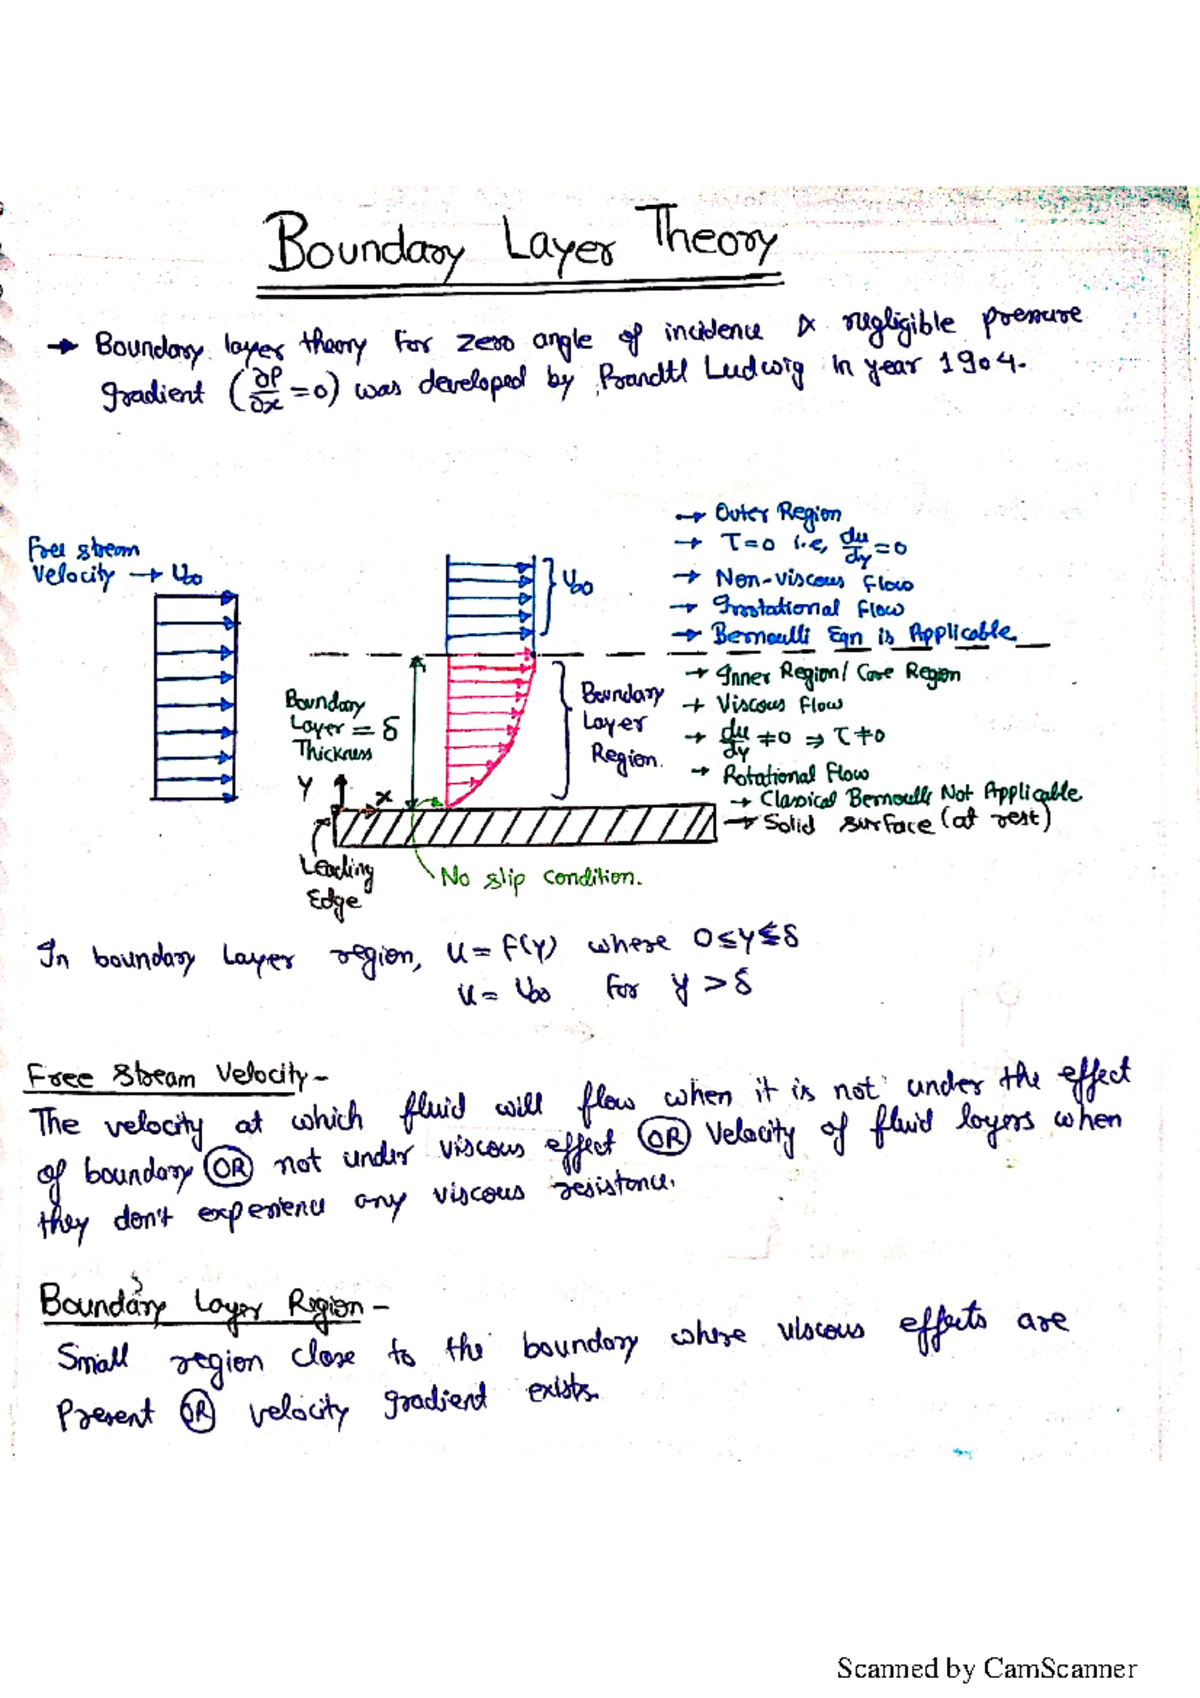 Boundary Layer Theory
→ Boundary layer theory for zero angle of incidence & negligible pressure
gradient (∂P/∂x = 0) was developed by Prandtl Ludwig in year 1904.
Free stream
velocity → U∞
U∞
→ Outer Region
→ τ=0 i.e, du/dy = 0
→ Non-viscous flow
→ Irrotational flow
→ Bernoulli Eqn is Applicable
Boundary
Layer = δ
Thickness
Boundary
Layer
Region.
→ Inner Region/ Core Region
→ Viscous flow
→ du/dy ≠ 0 ⇒ τ ≠ 0
→ Rotational flow
→ Classical Bernoulli Not Applicable
→ Solid surface (at rest)
Y
x
Leading
Edge
No slip condition.
In boundary layer region, u = f(y) where 0 ≤ y ≤ δ
u = U∞ for y > δ
Free stream velocity -
The velocity at which fluid will flow when it is not under the effect
of boundary OR not under viscous effect OR Velocity of fluid layers when
they don't experience any viscous resistance.
Boundary Layer Region -
Small region close to the boundary where viscous effects are
Present OR velocity gradient exists.
Scanned by CamScanner